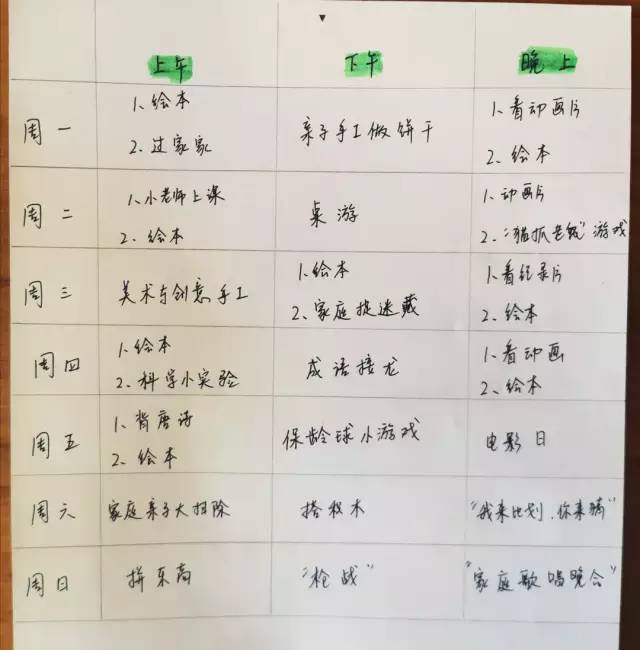 上午
下午
晚上
周一
1、绘本
2、过家家
亲子手工做饼干
1、看动画片
2、绘本
周二
1、小老师上课
2、绘本
桌游
1、动画片
2、"猫抓老鼠"游戏
周三
美术与创意手工
1、绘本
2、家庭捉迷藏
1、看纪录片
2、绘本
周四
1、绘本
2、科学小实验
成语接龙
1、看动画
2、绘本
周五
1、背唐诗
2、绘本
保龄球小游戏
电影日
周六
家庭亲子大扫除
搭积木
"我来比划,你来猜"
周日
拼乐高
"枪战"
"家庭歌唱晚会"